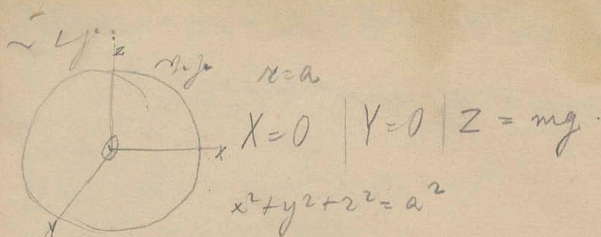 z
r=a
x
X=0 | Y=0 | Z = mg.
x²+y²+z²=a²
y